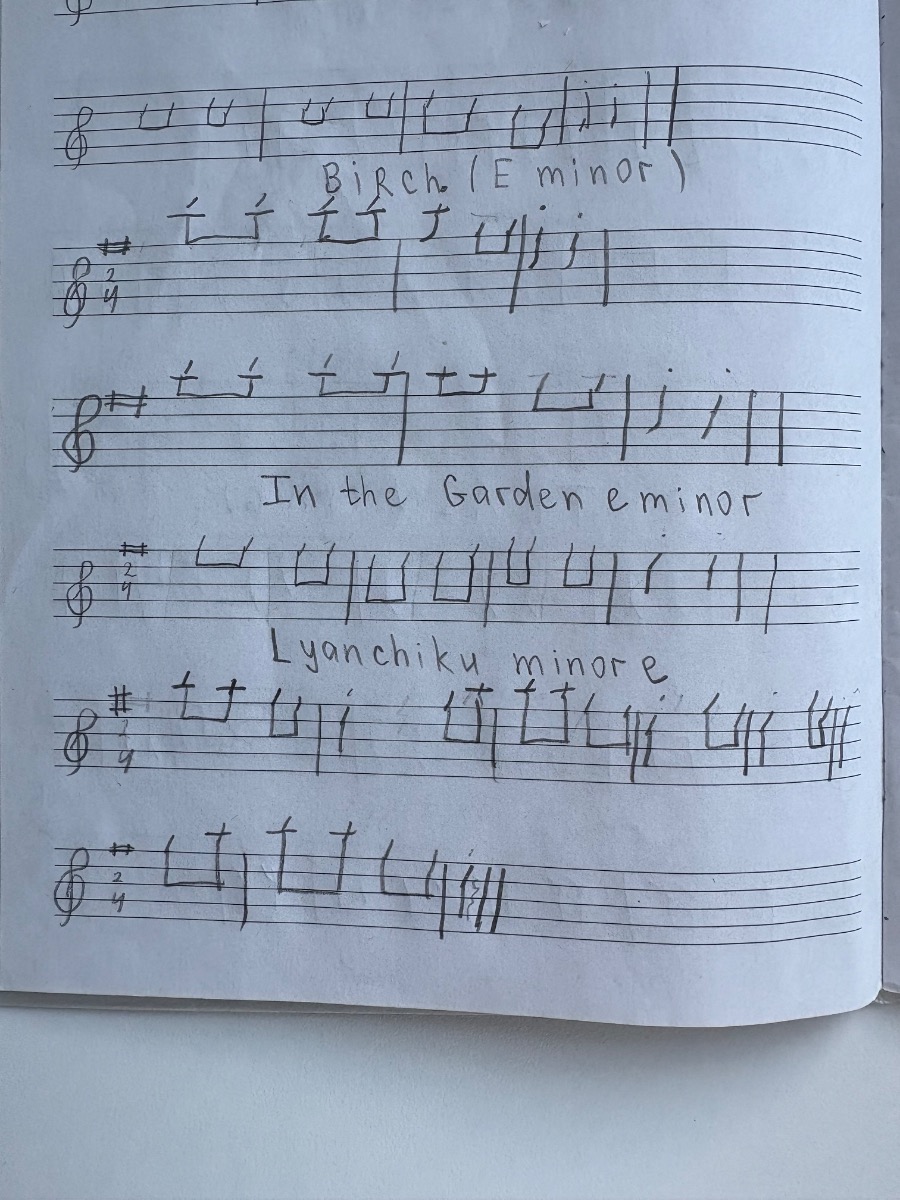 Birch. (E minor)
2
4
In the Garden e minor
2
4
Lyanchiku minor e
2
4
2
4